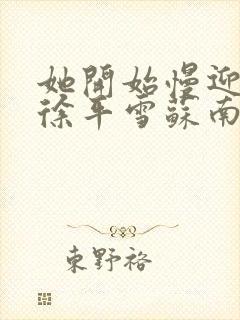 她開始慢迎
徐平雪蘇南
東野裕